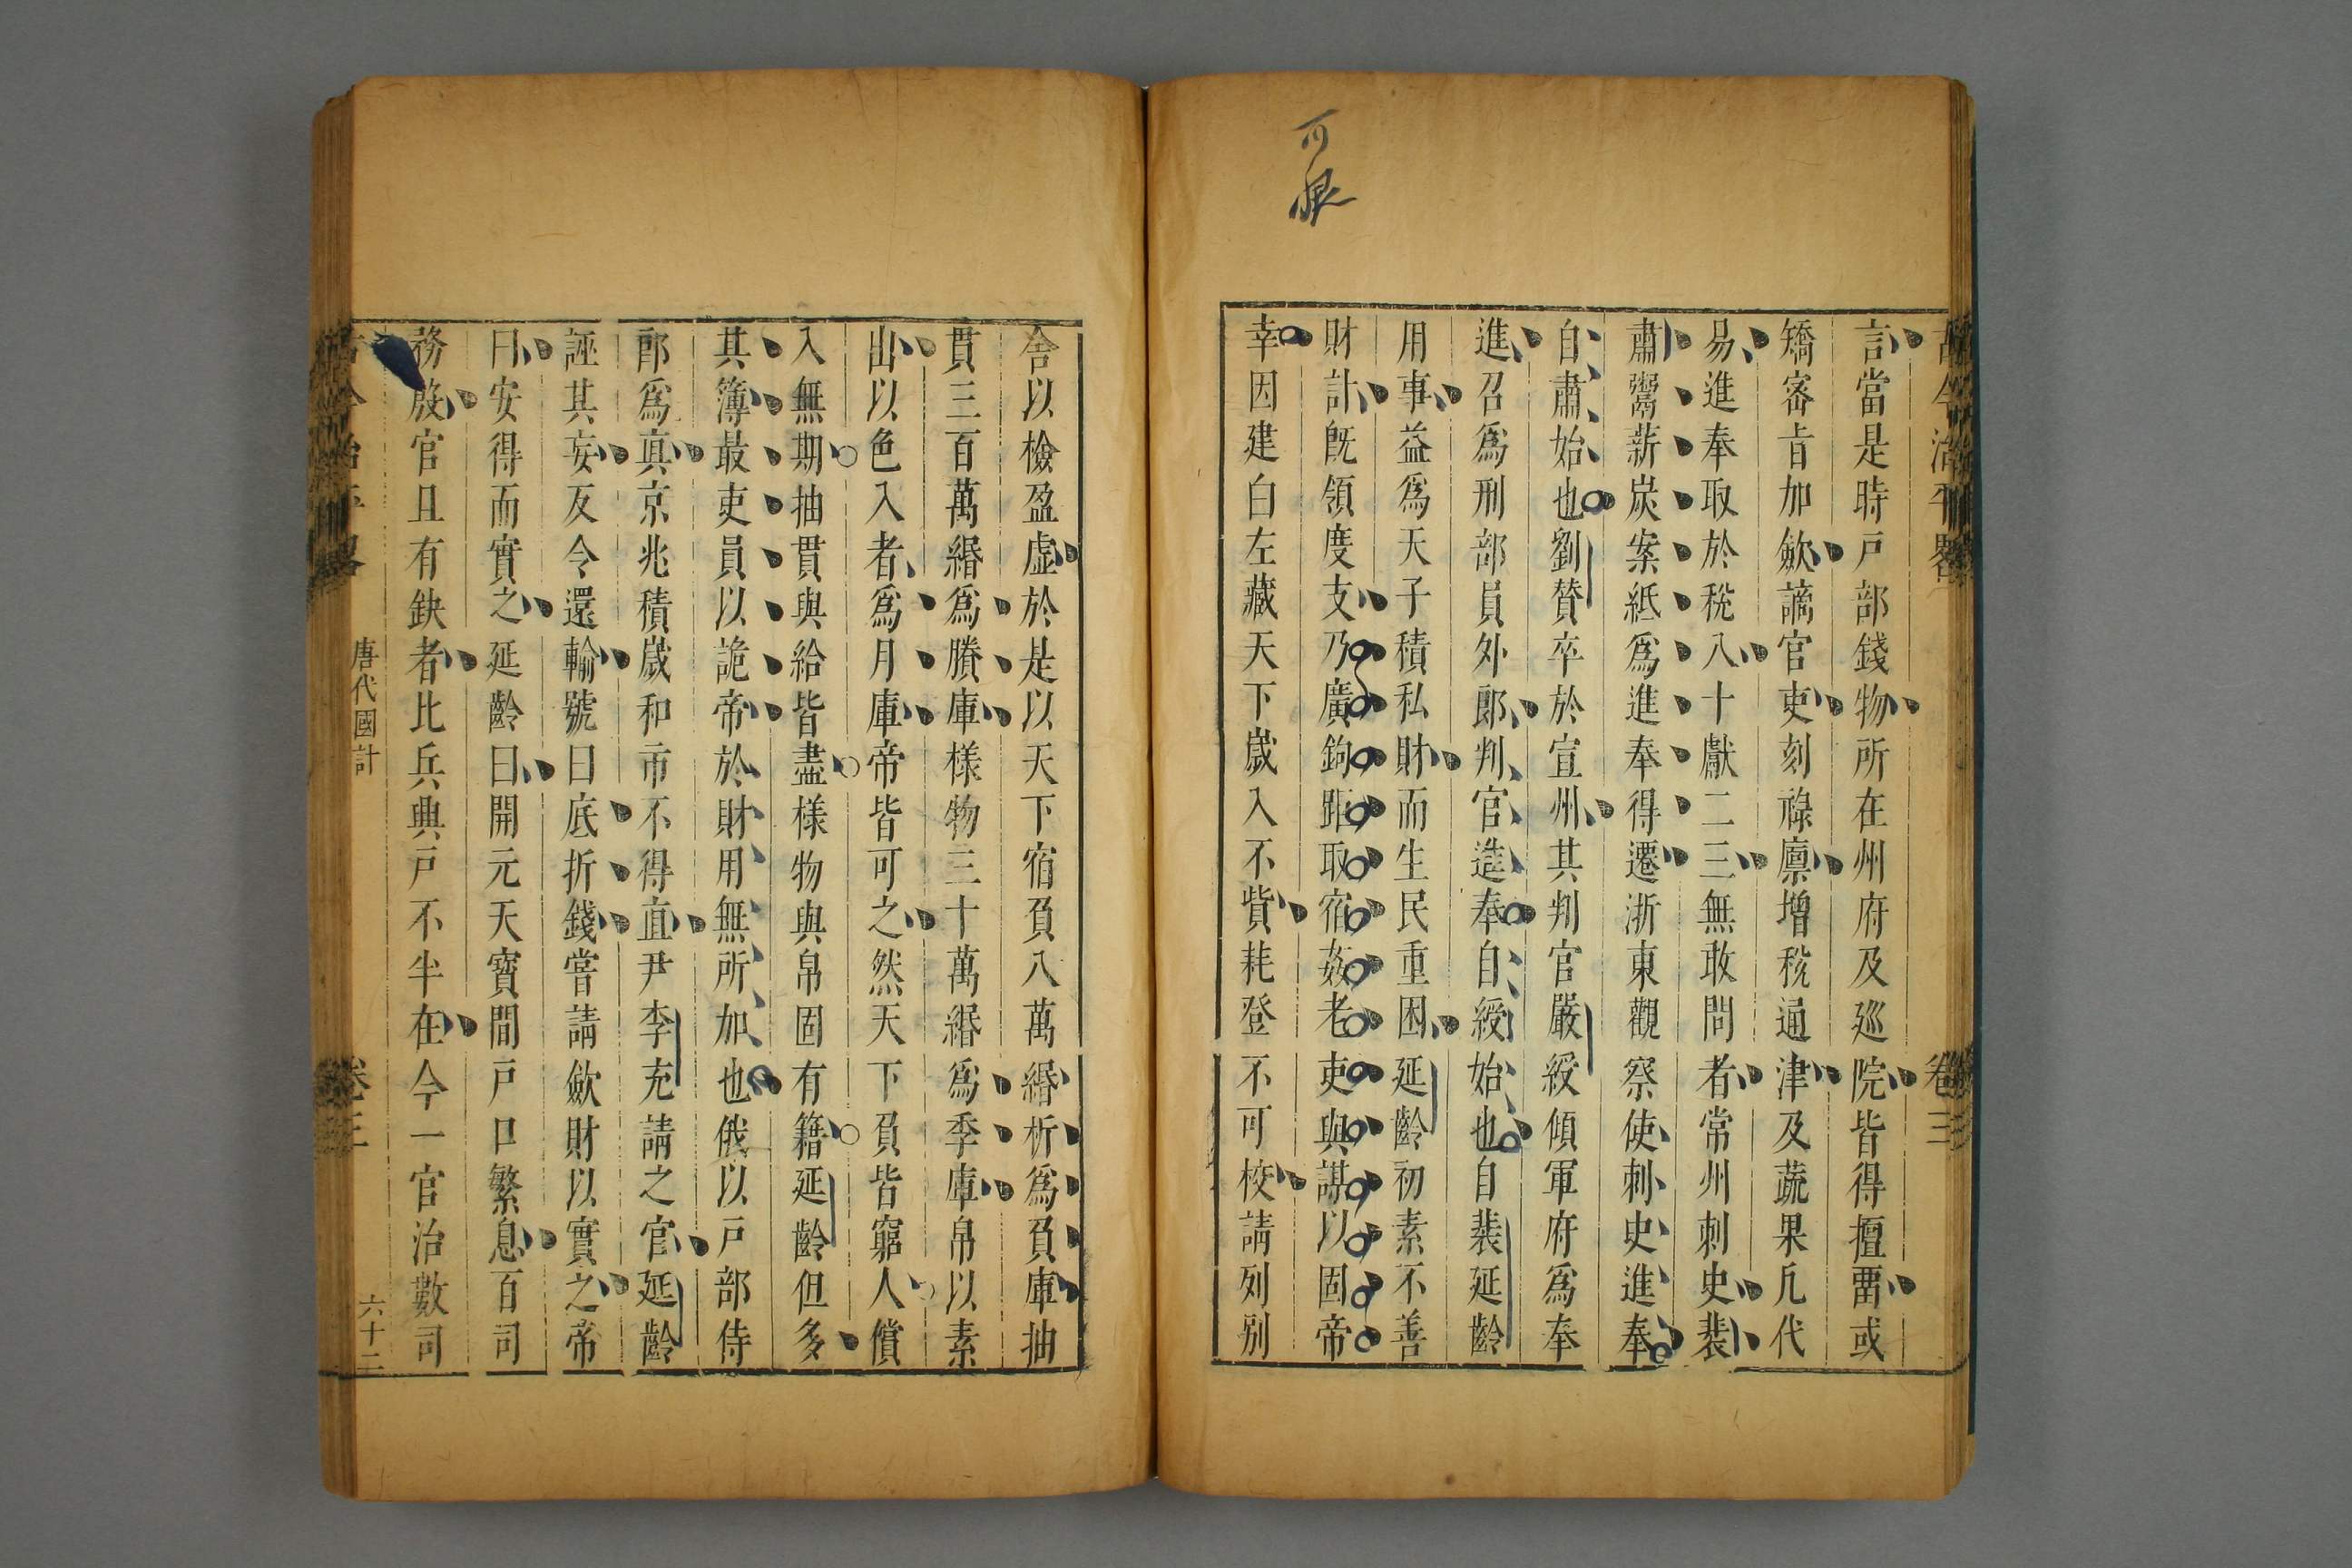 可恨
古今治平畧
卷三
言當是時戸部錢物所在州府及廵院皆得擅畱或
矯宻旨加歛謫官吏刻祿廪增稅通津及蔬果凡代
易進奉取於稅入十獻二三無敢問者常州刺史裴
肅鬻薪炭案紙爲進奉得遷浙東觀察使刺史進奉
自肅始也劉贊卒於宣州其判官嚴綬傾軍府爲奉
進召爲刑部員外郞判官造奉自綬始也自裴延齡
用事益爲天子積私財而生民重困延齡初素不善
財計旣領度支乃廣鉤距取宿姦老吏與謀以固帝
幸因建白左藏天下歲入不貲耗登不可校請列别
舍以檢盈虛於是以天下宿負八萬緡析爲負庫抽
貫三百萬緡爲賸庫樣物三十萬緡爲季庫帛以素
出以色入者爲月庫帝皆可之然天下負皆窮人償
入無期抽貫與給皆盡樣物與帛固有籍延齡但多
其簿最吏員以詭帝於財用無所加也俄以戸部侍
郎爲真京兆積歲和市不得直尹李充請之官延齡
誣其妄反令還輸號曰底折錢嘗請歛財以實之帝
曰安得而實之延齡曰開元天寳間戸口繁息百司
務殷官且有缺者比兵興戸不半在今一官治數司
古今治平畧
唐代國計
卷三
六十二